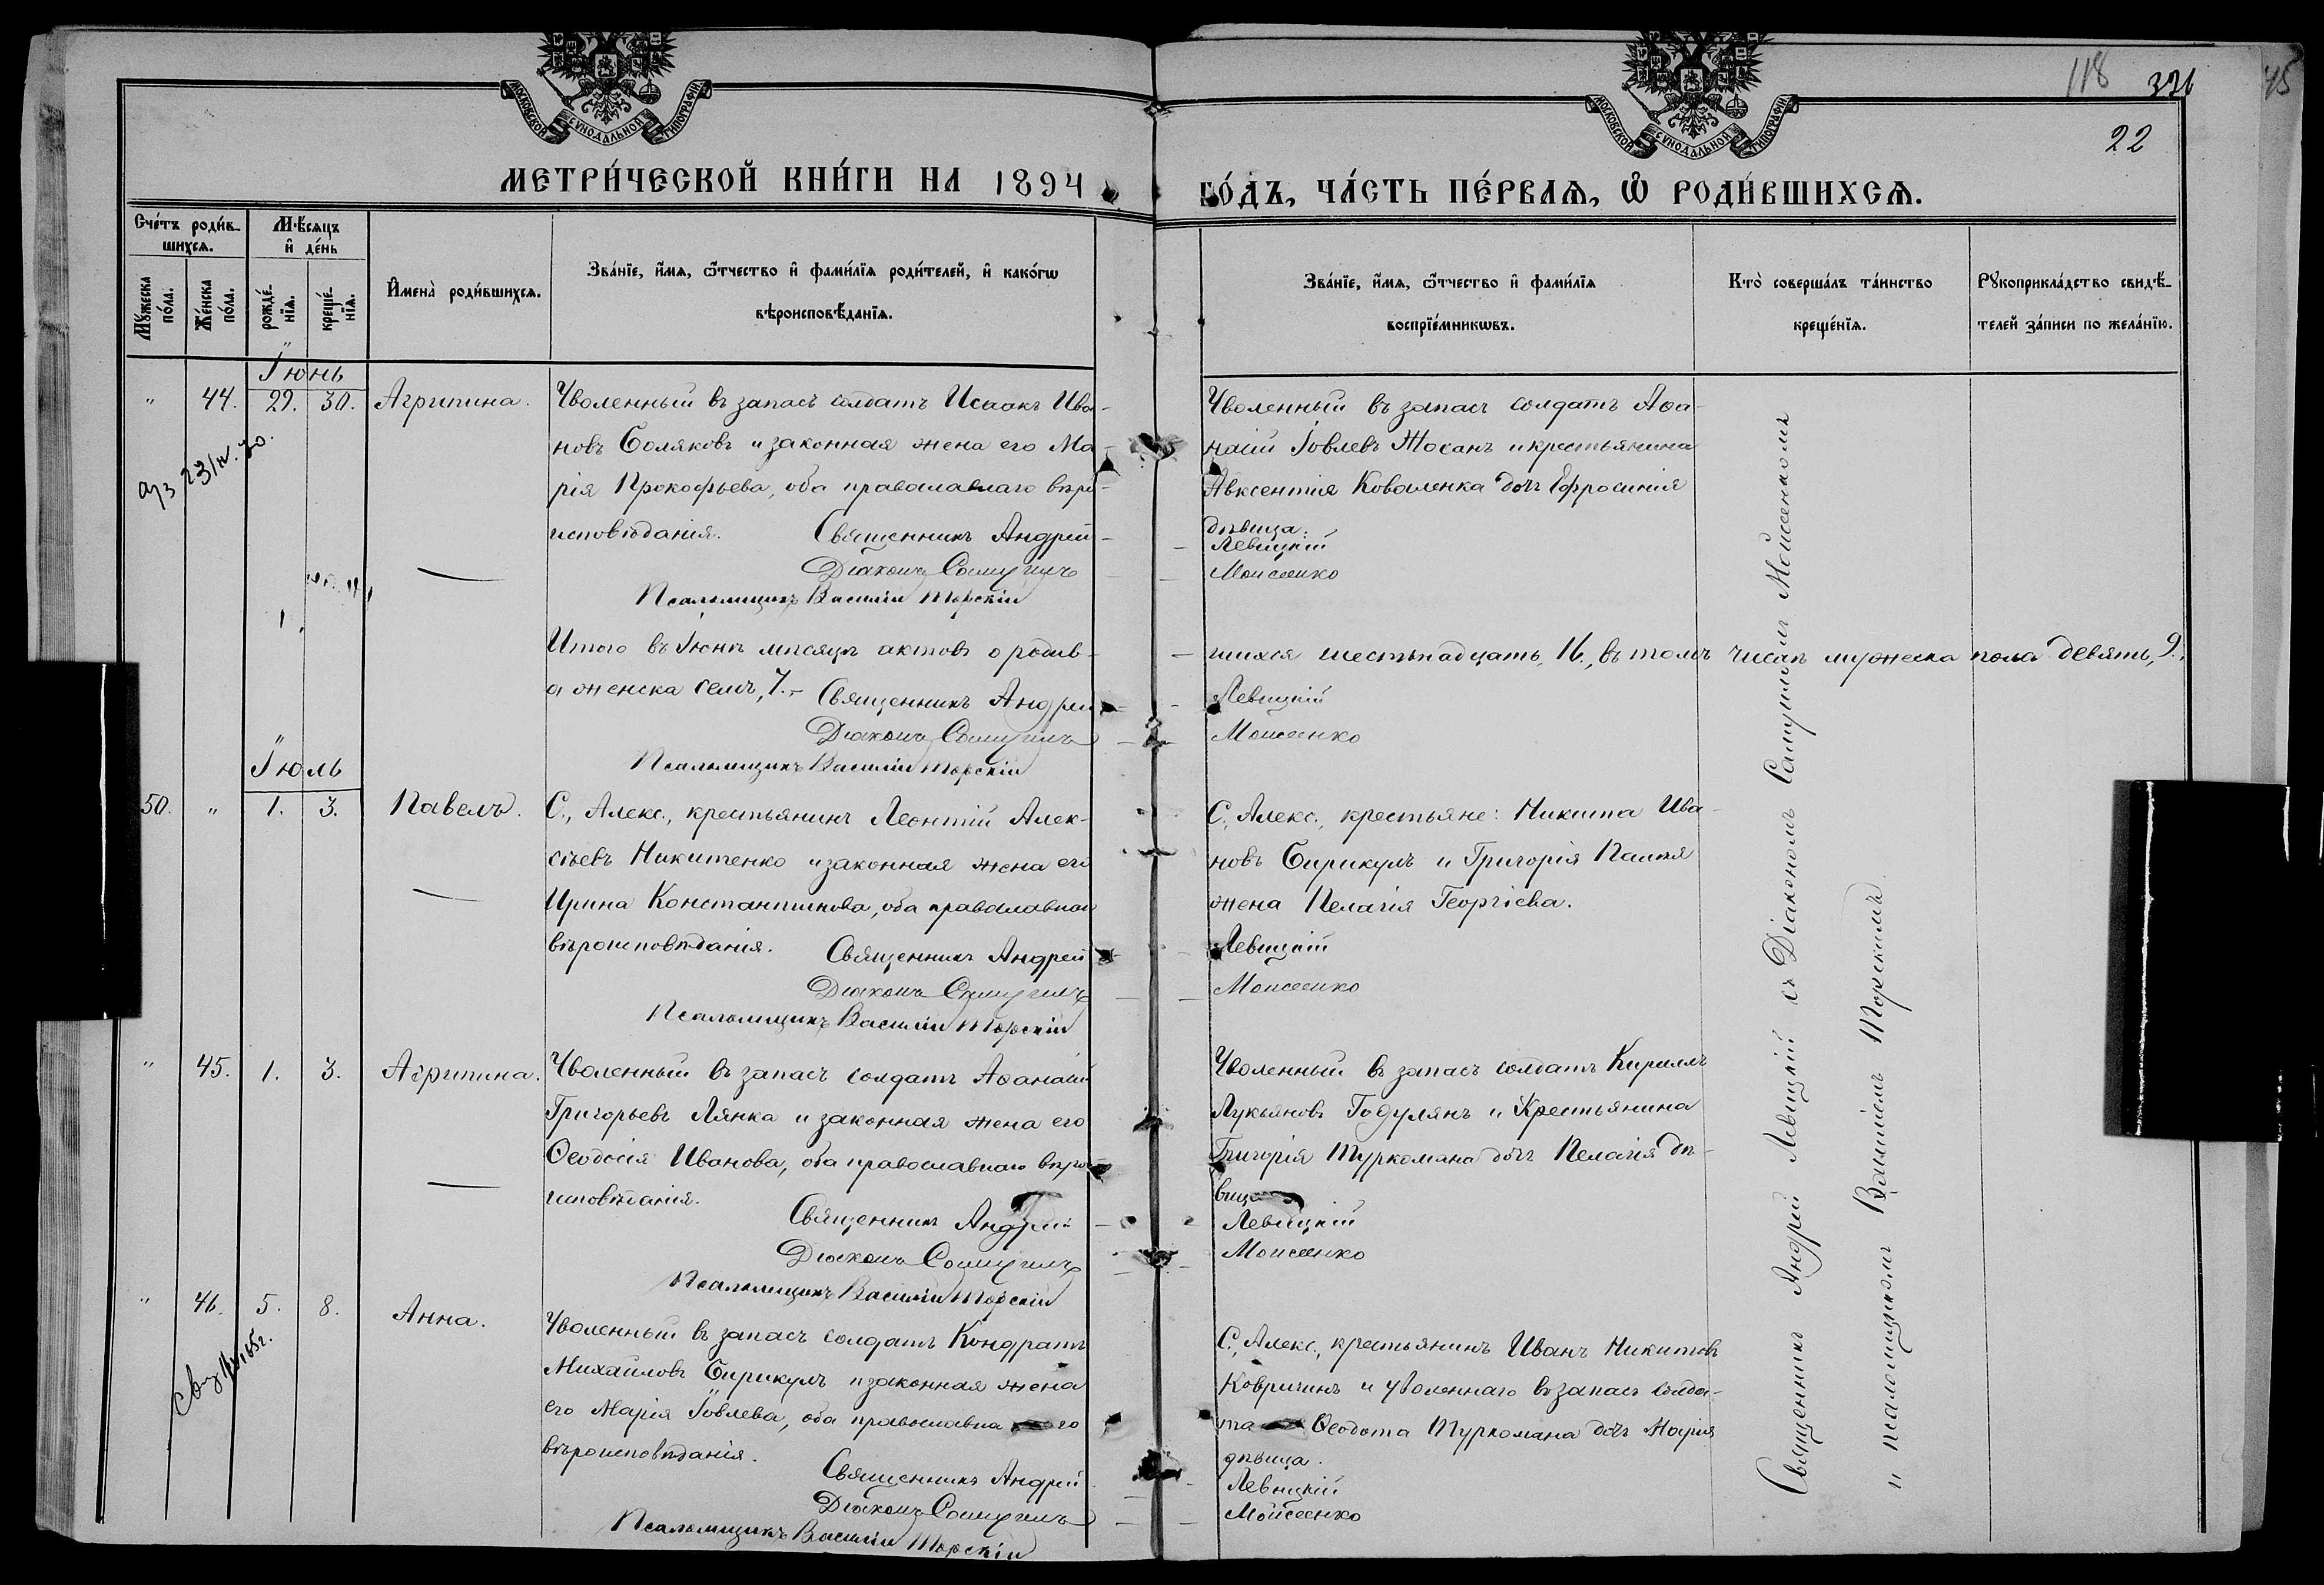 МОСКОВСКОЙ СѴНОДАЛЬНОЙ ТИПОГРАФІИ
МОСКОВСКОЙ СѴНОДАЛЬНОЙ ТИПОГРАФІИ
118
45
22
МЕТРИ́ЧЕСКОЙ КНИ́ГИ НА 1894
ГО́ДЪ, ЧА́СТЬ ПЕ́РВАѦ, Ѡ҆ РОДИ́ВШИХСѦ.
Сче́тъ роди́в-
шихсѧ.
Мꙋжеска по́ла.
Же́нска по́ла.
Мѣ́сѧцъ
и҆ де́нь
рожде́нїѧ.
креще́нїѧ.
И҆мена̀ роди́вшихсѧ.
Зва́нїе, и҆́мѧ, ѻ҆́тчество и҆ фами́лїѧ роди́телей, и҆ како́гѡ
вѣроисповѣ́данїѧ.
Зва́нїе, и҆́мѧ, ѻ҆́тчество и҆ фами́лїѧ
воспрїе́мникѡвъ.
Кто̀ соверша́лъ та́инство
креще́нїѧ.
Рꙋкоприкла́дство свидѣ́-
телей за́писи по жела́нїю.
Іюнь
" 44. 29. 30. Агрипина.
Уволенный въ запасъ солдатъ Исаакъ Ива-
новъ Боляковъ и законная жена его Ма-
рія Прокофьева, оба православнаго вѣро-
исповѣданія. Священникъ Андрей
Діаконъ Самуилъ
Псаломщикъ Василій Торскій
Уволенный въ запасъ солдатъ Аѳа-
насій Іовлевъ Жосанъ и крестьянина
Авксентія Коваленка дочь Ефросинія
дѣвица.
Левицкій
Моисеенко
Итого въ Іюнѣ мѣсяцѣ актовъ о родив-
шихся шестьнадцать, 16., въ томъ числѣ мужеска пола девять, 9.,
а женска семь, 7.- Священникъ Андрей
Левицкій
Діаконъ Самуилъ
Моисеенко
Псаломщикъ Василій Торскій
Іюль
50. " 1. 3. Павелъ.
С., Алекс., крестьянинъ Леонтій Алек-
сѣевъ Никитенко и законная жена его
Ирина Константинова, оба православнаго
вѣроисповѣданія. Священникъ Андрей
Діаконъ Самуилъ
Псаломщикъ Василій Торскій
С., Алекс., крестьяне: Никита Ива-
новъ Бирикулъ и Григорія
жена Пелагія Георгіева.
Левицкій
Моисеенко
" 45. 1. 3. Агрипина.
Уволенный въ запасъ солдатъ Аѳанасій
Григорьевъ Лянка и законная жена его
Ѳеодосія Иванова, оба православнаго вѣро-
исповѣданія.
Священникъ Андрей
Діаконъ Самуилъ
Псаломщикъ Василій Торскій
Уволенный въ запасъ солдатъ Кириллъ
Лукьяновъ Годулянъ и крестьянина
Григорія Туркомана дочь Пелагія дѣ-
вица
Левицкій
Моисеенко
" 46. 5. 8. Анна.
Уволенный въ запасъ солдатъ Кондратъ
Михайловъ Бирикулъ и законная жена
его Марія Іовлева, оба православна го
вѣроисповѣданія.
Священникъ Андрей
Діаконъ Самуилъ
Псаломщикъ Василій Торскій
С., Алекс., крестьянинъ Иванъ Никитовъ
Ковригинъ и уволеннаго въ запасъ солда-
та Ѳеодота Туркомана дочь Марія
дѣвица.
Левицкій
Моисеенко
Священникъ Андрей Левицкій съ Діакономъ Самуиломъ Моисеенкомъ
и псаломщикомъ Василіемъ Торскимъ